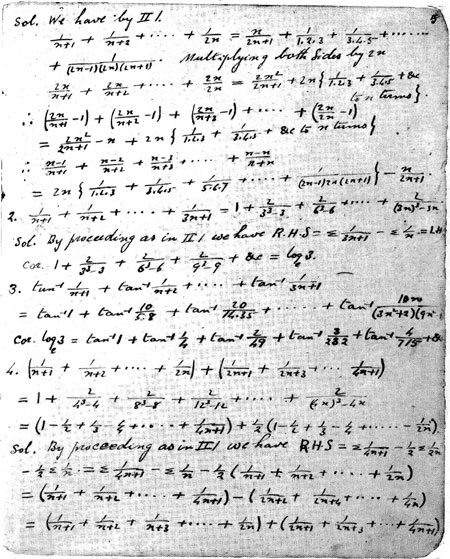 5
Sol. We have by II 1.
1/(n+1) + 1/(n+2) + ····· + 1/2n = n/(2n+1) + 1/1.2.3 + 1/3.4.5 + ·······
+ 1/((2n-1)(2n)(2n+1)). Multiplying both sides by 2n
2n/(n+1) + 2n/(n+2) + ····· + 2n/2n = 2n²/(2n+1) + 2n{1/1.2.3 + 1/3.4.5 + &c
to n terms}.
∴ (2n/(n+1) -1) + (2n/(n+2) -1) + (2n/(n+3) -1) + ····· + (2n/2n -1)
= 2n²/(2n+1) - n + 2n{1/1.2.3 + 1/3.4.5 + &c to n terms}
∴ (n-1)/(n+1) + (n-2)/(n+2) + (n-3)/(n+3) + ····· + (n-n)/(n+n)
= 2n{1/1.2.3 + 1/3.4.5 + 1/5.6.7 + ····· + 1/((2n-1)2n(2n+1))} - n/(2n+1).
2. 1/(n+1) + 1/(n+2) + ····· + 1/(3n+1) = 1 + 2/(3³-3) + 2/(6³-6) + ····· + 2/((3n)³-3n)
Sol. By proceeding as in II 1 we have R.H.S = Σ 1/(3n+1) - Σ 1/n = LH
Cor. 1 + 2/(3³-3) + 2/(6³-6) + 2/(9³-9) + &c = logₑ3.
3. tan⁻¹ 1/(n+1) + tan⁻¹ 1/(n+2) + ····· + tan⁻¹ 1/(3n+1)
= tan⁻¹1 + tan⁻¹ 10/5.8 + tan⁻¹ 20/14.35 + ····· + tan⁻¹ 10n/((3n²+2)(9n²
Cor. logₑ3 = tan⁻¹1 + tan⁻¹ 1/4 + tan⁻¹ 2/49 + tan⁻¹ 3/232 + tan⁻¹ 4/715 + &c
4. (1/(n+1) + 1/(n+2) + ····· + 1/2n) + (1/(2n+1) + 1/(2n+3) + ····· 1/(4n+1))
= 1 + 2/(4³-4) + 2/(8³-8) + 2/(12³-12) + ····· + 2/((4n)³-4n)
= (1 - 1/2 + 1/3 - 1/4 + ····· + 1/(4n+1)) + 1/2(1 - 1/2 + 1/3 - 1/4 + ····· - 1/2n)
Sol. By proceeding as in II 1 we have RHS = Σ 1/(4n+1) - 1/2 Σ 1/2n
- 1/2 Σ 1/n = Σ 1/(4n+1) - Σ 1/n - 1/2(1/(n+1) + 1/(n+2) + ····· + 1/2n)
= (1/(n+1) + 1/(n+2) + ····· + 1/(4n+1)) - (1/(2n+2) + 1/(2n+4) + ····· + 1/4n)
= (1/(n+1) + 1/(n+2) + 1/(n+3) + ····· + 1/2n) + (1/(2n+1) + 1/(2n+3) + ··· + 1/(4n+1))